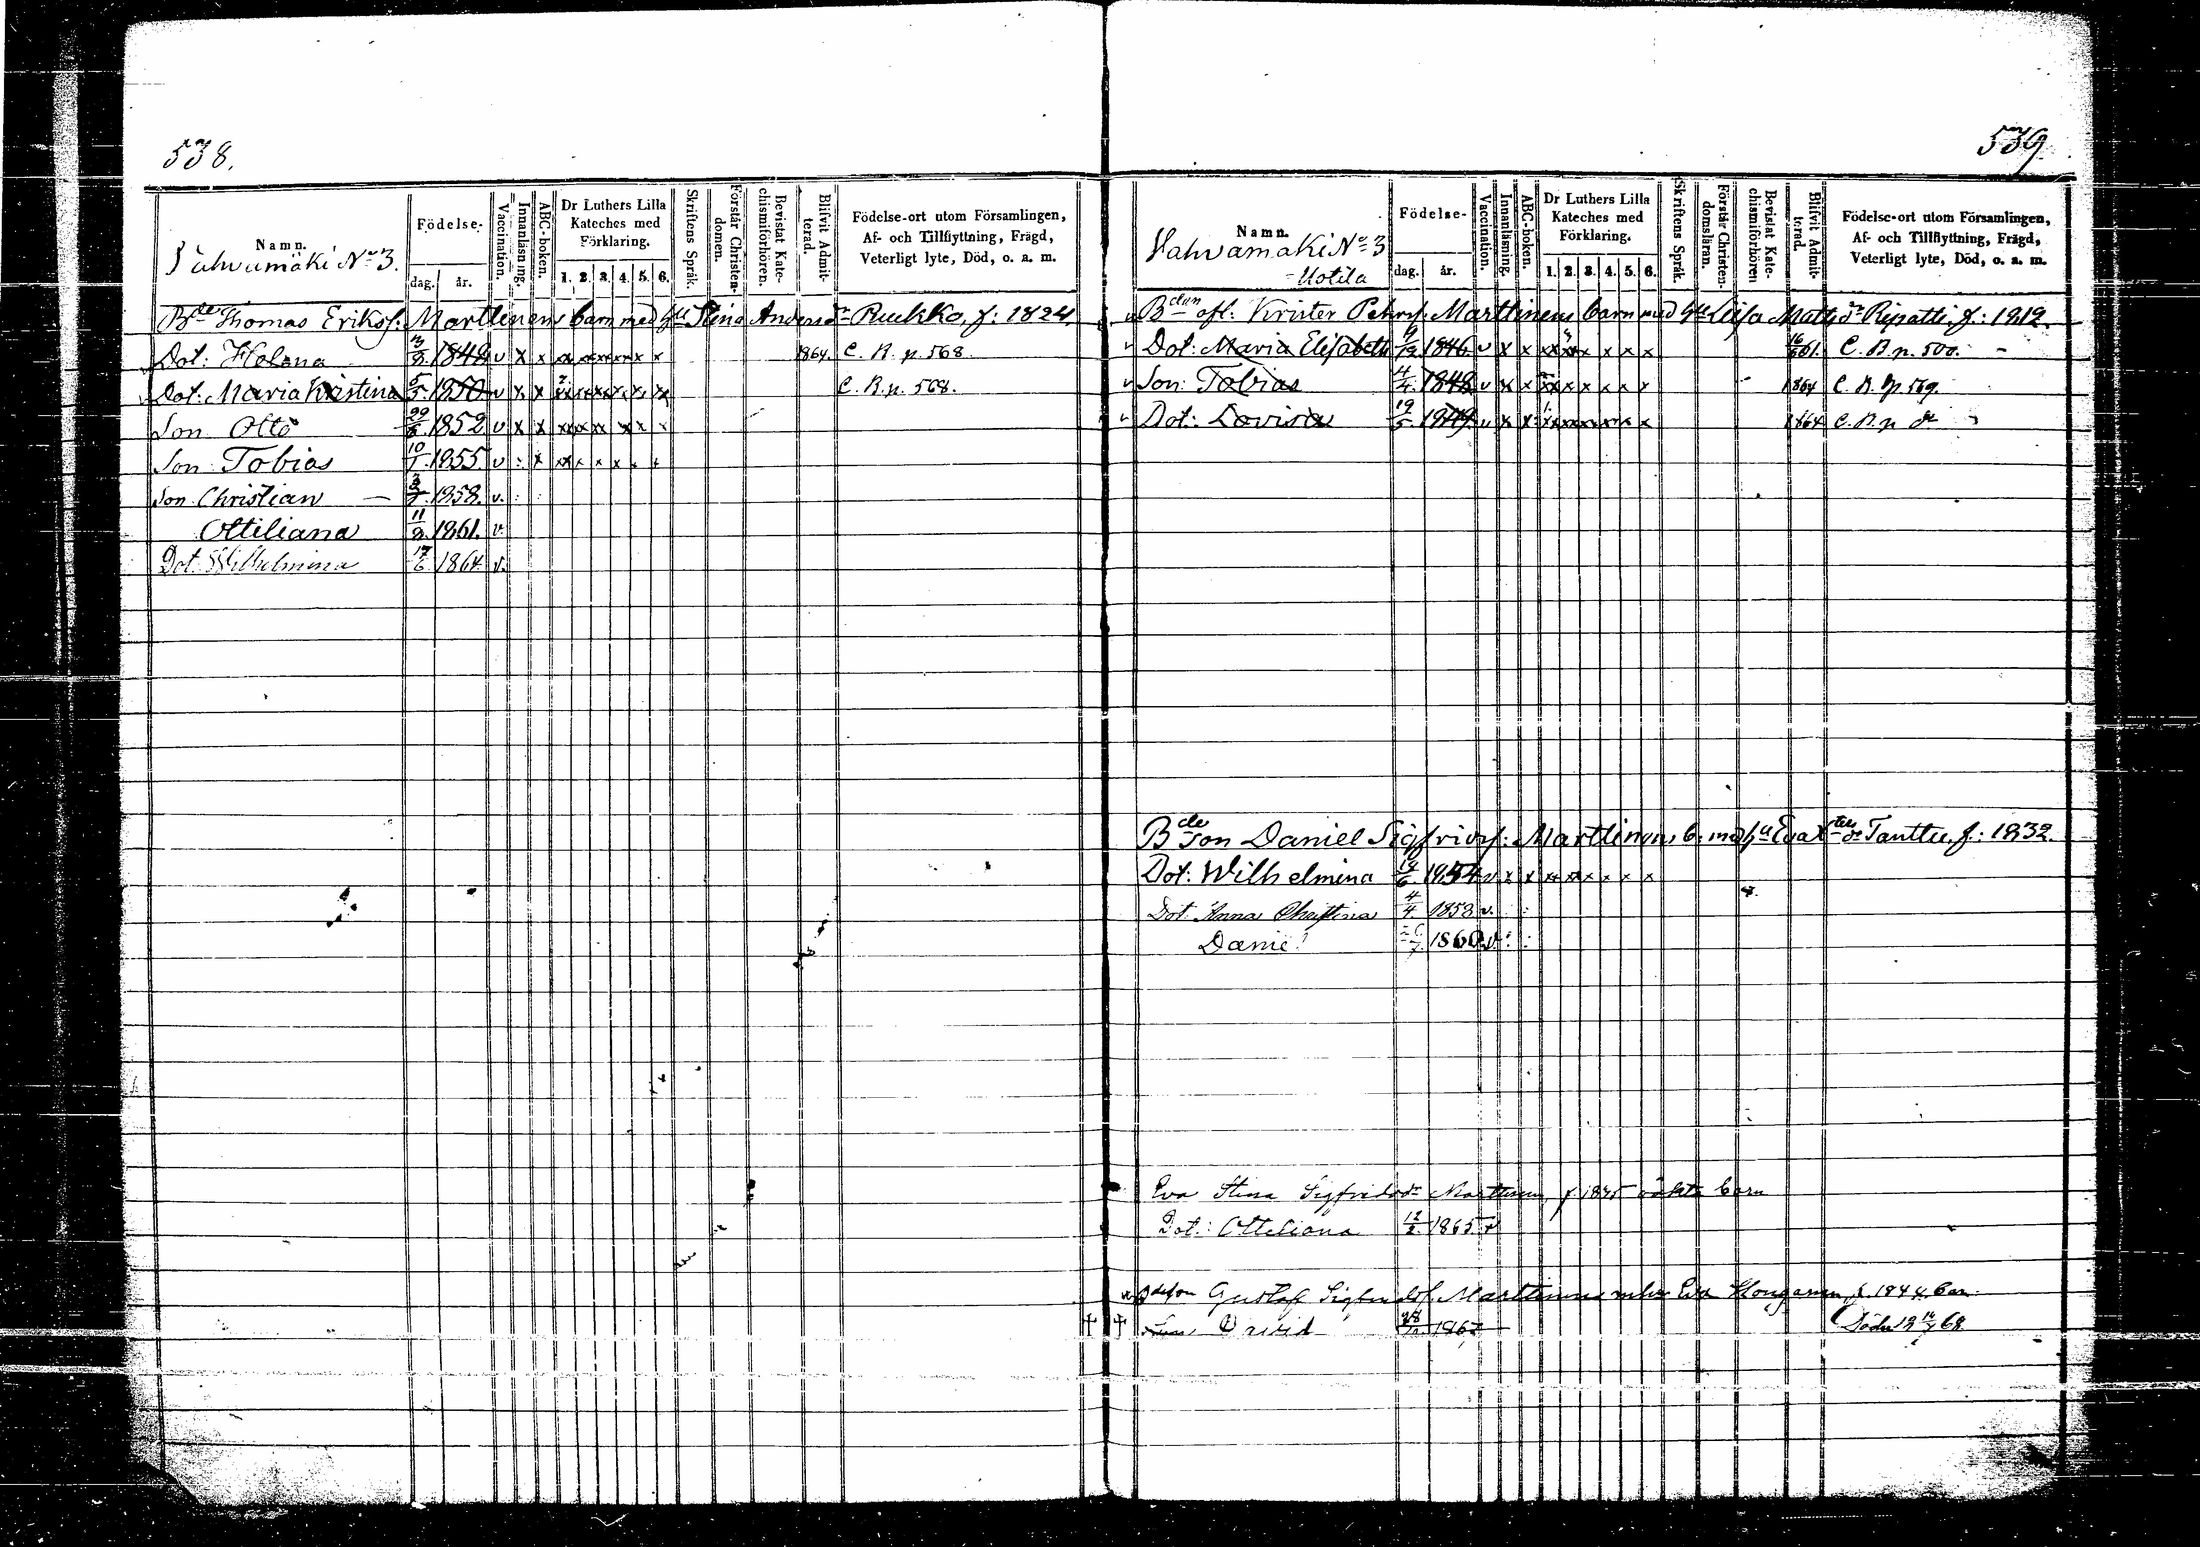 538.
Namn.
Vahvamäki No 3.
Födelse-
dag. år.
Vaccination.
Innanläsning.
ABC-boken.
Dr Luthers Lilla
Kateches med
Förklaring.
1. 2. 3. 4. 5. 6.
Skriftens Språk.
Förstår Christen-
domen.
Bevistat Kate-
chismiförhören.
Blifvit Admit-
terad.
Födelse-ort utom Församlingen,
Af- och Tillflyttning, Frägd,
Veterligt lyte, Död, o. a. m.
Bde Thomas Eriksf: Marttinens barn med hu Stina Andersdr Ruukko, f: 1824.
Dot: Helena 1848 v x x 1864. C. B. p. 568.
Dot: Maria Kristina 5/5 1850 v x x C. B. p. 568.
Son Otto 29/8 1852 v x x
Son Tobias 10/1 1855 v : x
Son Christian 1858. v. : :
Ottiliana 11/2 1861. v.
Dot. Wilhelmina 17/6 1864. v.
539.
Namn.
Vahvamäki No 3
Uotila
Födelse-
dag. år.
Vaccination.
Innanläsning.
ABC-boken.
Dr Luthers Lilla
Kateches med
Förklaring.
1. 2. 3. 4. 5. 6.
Skriftens Språk.
Förstår Christen-
domsläran.
Bevistat Kate-
chismiförhören
Blifvit Admit-
terad.
Födelse-ort utom Församlingen,
Af- och Tillflyttning, Frägd,
Veterligt lyte, Död, o. a. m.
Bden afl: Krister Pehrsf: Marttinens barn med hu Lisa Mattsdr Ripatti, f: 1812.
Dot: Maria Elisabeth 9/12 1846 v x x C. B. p. 500.
Son: Tobias 4/4 1848 v x x 1864 C. B. p. 569.
Dot: Lovisa 1849 v x x 1864 C. B. p do
Bdeson Daniel Sigfridsf: Marttinens b: med hu Eva Tanttu, f: 1832.
Dot: Wilhelmina 19/6 1854 v x x
Dot. Anna Christina 4/4 1858 v. :
Daniel 1860 v. : :
Eva Stina Sigfridsdr Marttinen, f. 1845 oäkta barn
Dot: Ottiliana 12/2 1865. v
Bdeson Gustaf Sigfridsf. Marttinens Eva Honganen, f. 1844, barn
† † Son David 28/ 1867 Död 68